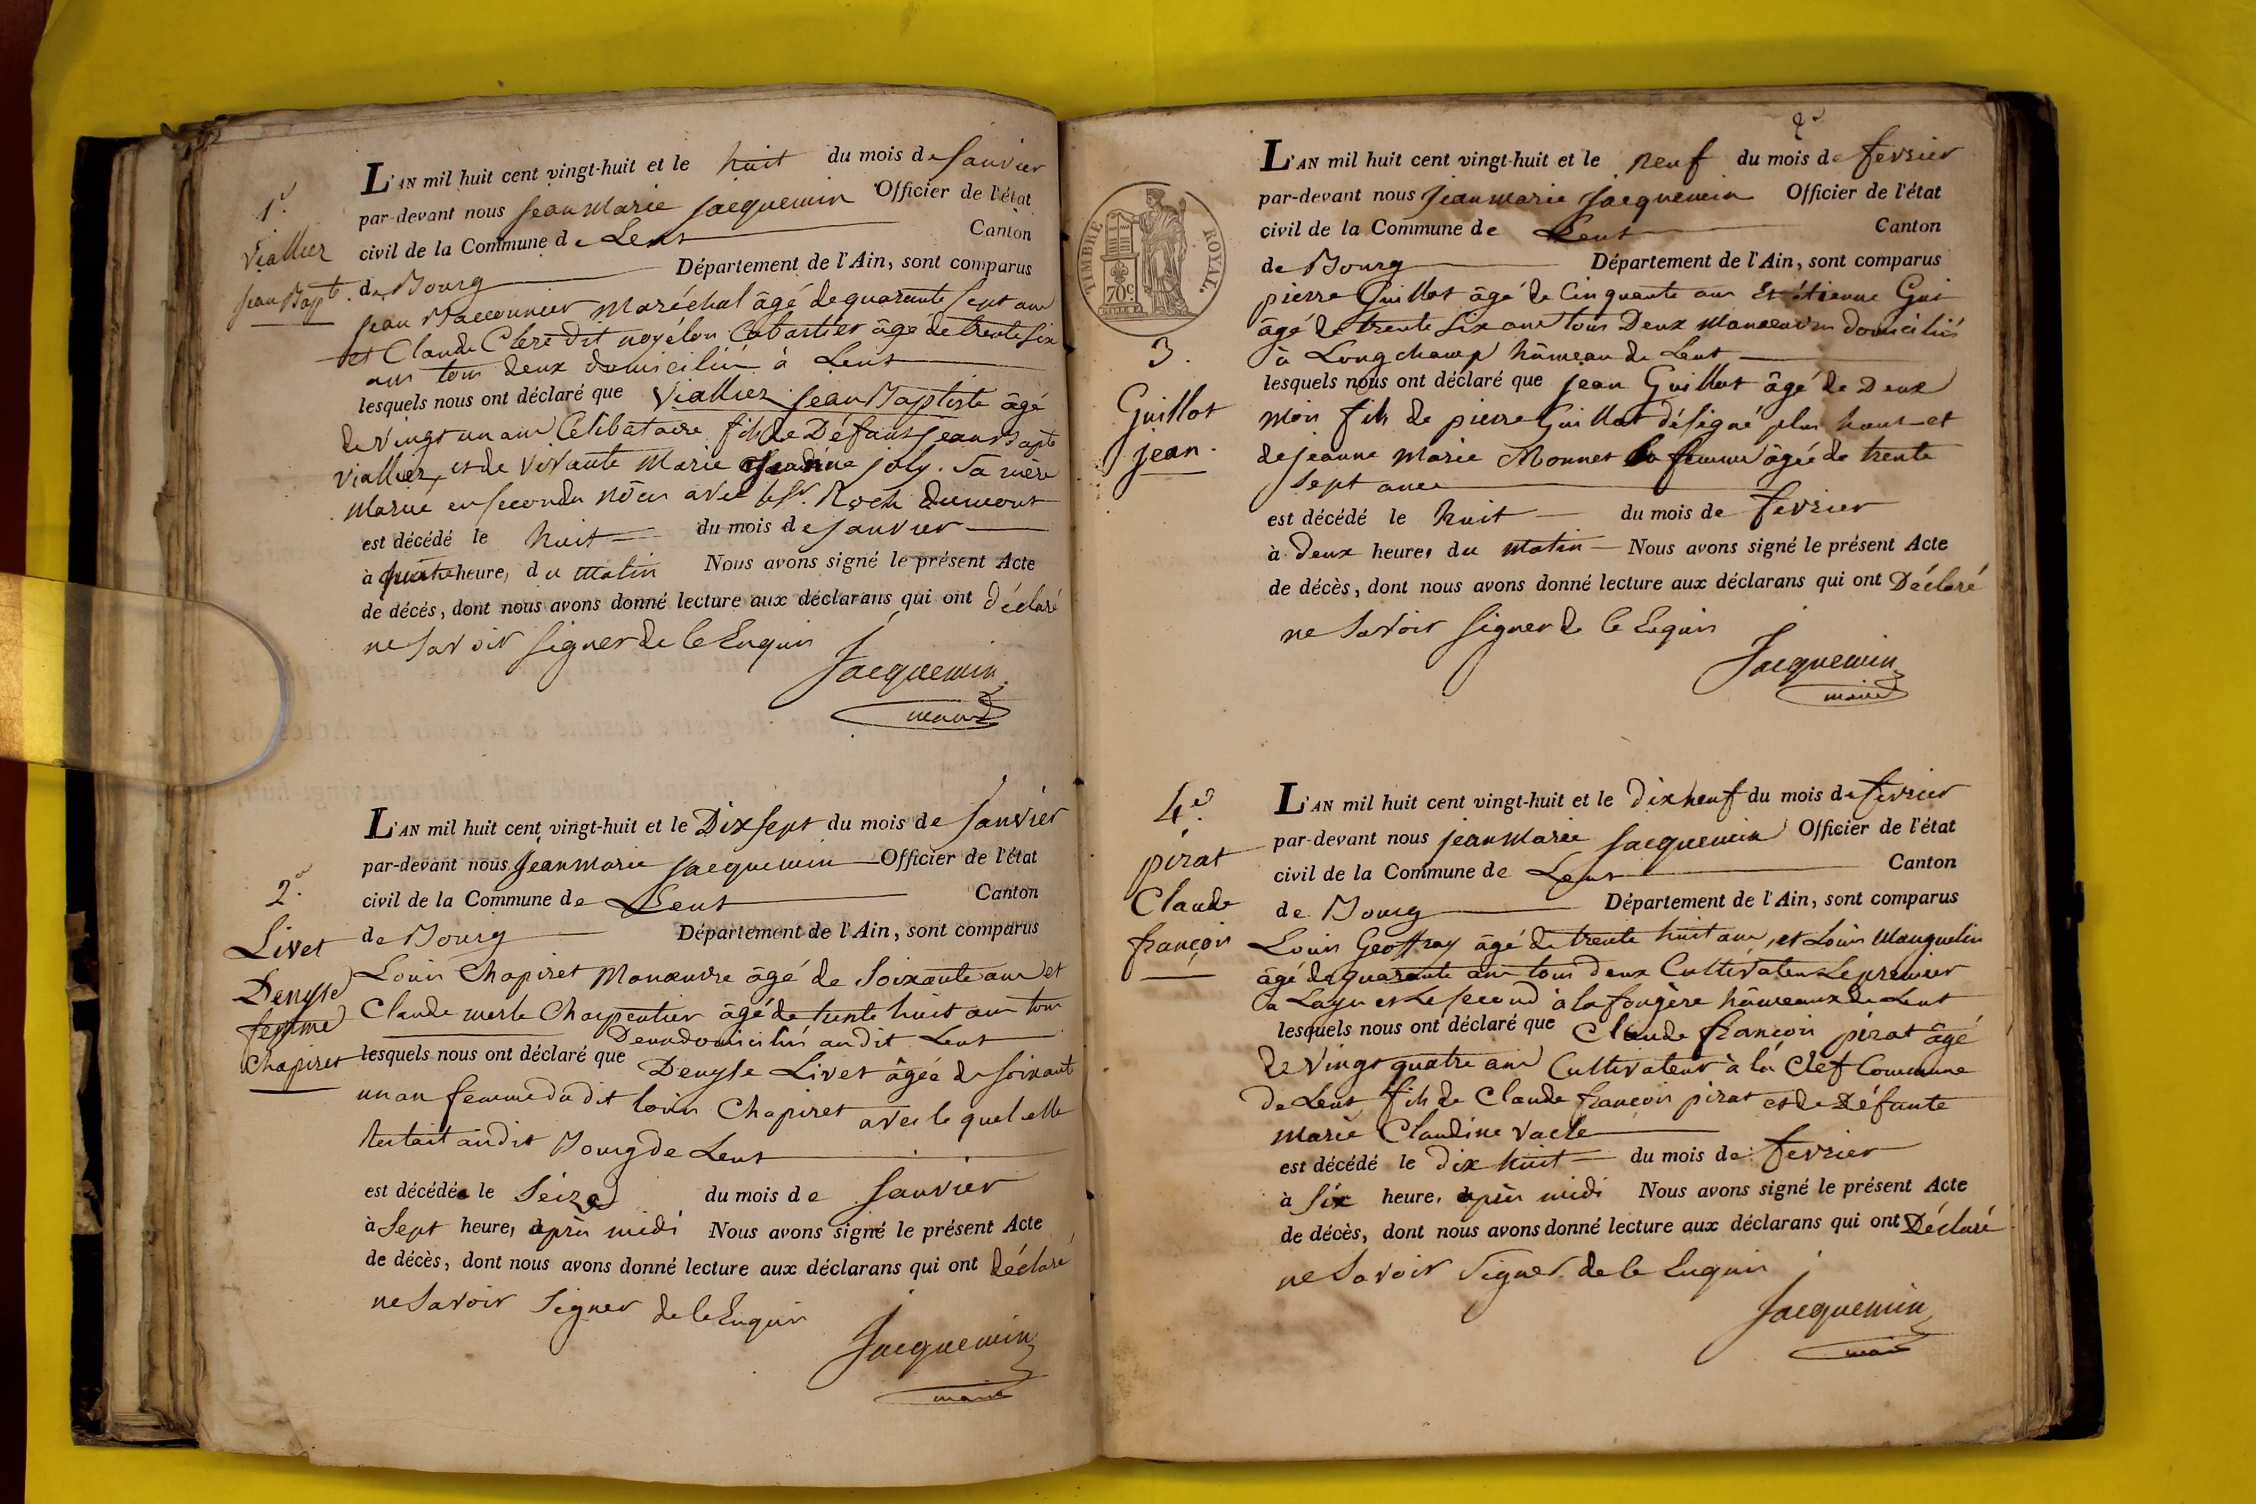 1.e
Viallier
Jean Bapt.
L'AN mil huit cent vingt-huit et le huit du mois de Janvier
par-devant nous Jean Marie Jacquemin Officier de l'état
civil de la Commune de Lent Canton
de Bourg Département de l'Ain, sont comparus
Jean Maréchal âgé de quarante sept ans
et Claude Clere dit noyélon Cabartier âgé de trente six
ans tous deux domiciliés à Lent
lesquels nous ont déclaré que Viallier Jean Baptiste âgé
de vingt un ans Célibataire fils de Défunt Jean Bapte
Viallier et de vivante Marie joly. Sa mère
Mariée en secondes nôces avec le Sr. Roch dumont
est décédé le huit du mois de Janvier
à quatre heures du matin Nous avons signé le présent Acte
de décés, dont nous avons donné lecture aux déclarans qui ont déclaré
ne Savoir Signer de ce Enquis
Jacquemin
maire
2.e
Livet
Denyse
femme
Chapiret
L'AN mil huit cent vingt-huit et le Dix Sept du mois de Janvier
par-devant nous Jean Marie Jacquemin Officier de l'état
civil de la Commune de Lent Canton
de Bourg Département de l'Ain, sont comparus
Louis Chapiret Manœuvre âgé de Soixante ans et
Claude merle Charpentier âgé de trente huit ans tous
Deux domiciliés audit Lent
lesquels nous ont déclaré que Denyse Livet âgée de soixant
un an femme du dit Louis Chapiret avec le quel elle
restait audit Bourg de Lent
est décédée le Seize du mois de Janvier
à Sept heures après midi Nous avons signé le présent Acte
de décès, dont nous avons donné lecture aux déclarans qui ont déclaré
ne Savoir Signer de ce Enquis
Jacquemin
maire
2.e
TIMBRE ROYAL.
70c.
3.
Guillot
jean.
L'AN mil huit cent vingt-huit et le neuf du mois de fevrier
par-devant nous Jean Marie Jacquemin Officier de l'état
civil de la Commune de Lent Canton
de Bourg Département de l'Ain, sont comparus
pierre Guillot âgé de Cinquante ans Et étienne Gui
âgé de trente Six ans tous Deux Manœuvres domiciliés
à Longchamp hâmeau de Lent
lesquels nous ont déclaré que jean Guillot âgé de Deux
mois fils de pierre Guillot désigné plus haut et
de jeanne Marie Monnet Sa femme âgée de trente
Sept ans
est décédé le huit du mois de fevrier
à deux heures du matin Nous avons signé le présent Acte
de décès, dont nous avons donné lecture aux déclarans qui ont Déclaré
ne Savoir Signer de ce Enquis
Jacquemin
maire
4.e
pirat
Claude
françois
L'AN mil huit cent vingt-huit et le dix neuf du mois de fevrier
par-devant nous jean Marie Jacquemin Officier de l'état
civil de la Commune de Lent Canton
de Bourg Département de l'Ain, sont comparus
Louis Geoffray âgé de trente huit ans, et Louis Mauguelin
âgé de quarante ans tous deux Cultivateurs Le premier
à et Le second à la fougère hâmeaux de Lent
lesquels nous ont déclaré que Claude françois pirat âgé
de vingt quatre ans Cultivateur à la Clef Commune
de Lent fils de Claude françois pirat et de Défunte
Marie Claudine vacle
est décédé le dix huit du mois de fevrier
à Six heures après midi Nous avons signé le présent Acte
de décès, dont nous avons donné lecture aux déclarans qui ont Déclaré
ne Savoir Signer de ce Enquis
Jacquemin
maire